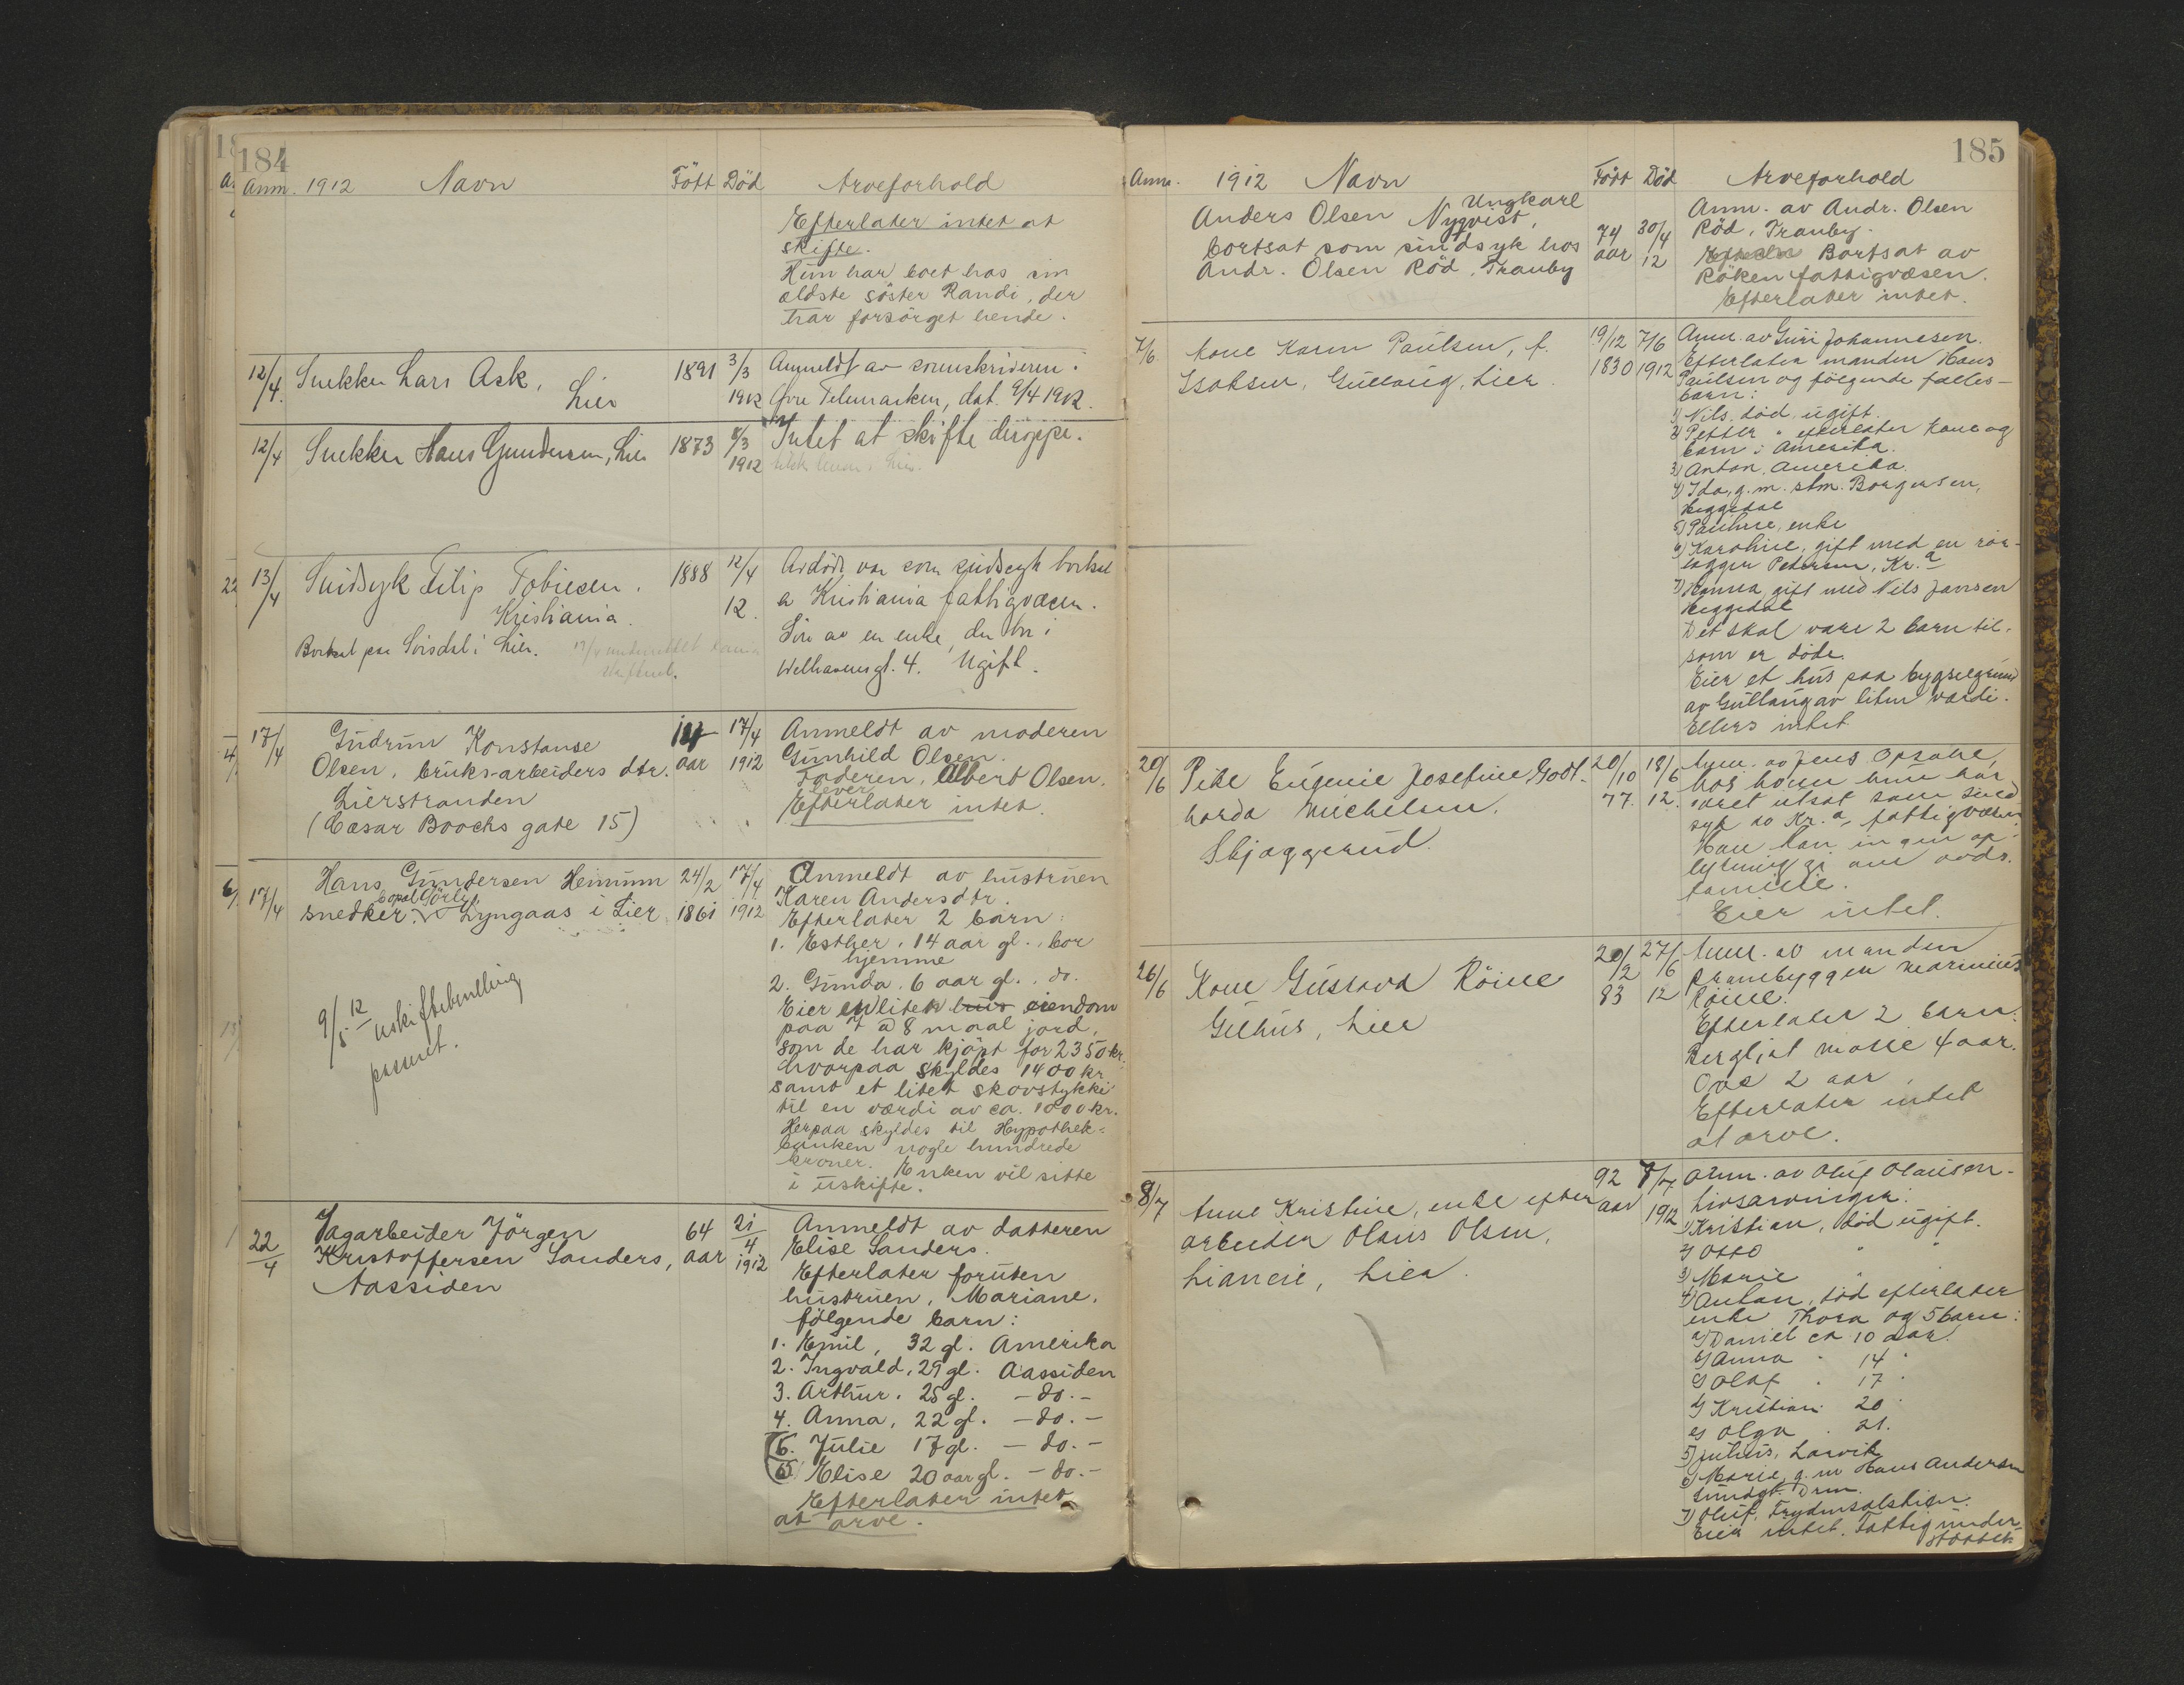 184
Anm. 1912 Navn Född Död Arveforhold
Efterlater intet at
skifte.
Hun har boet hos sin
ældste söster Randi, der
har forsörget hende.
12/4. Snekker Lars Ask, 1891 3/3 Anmeldt av sorenskriveren i
Lier 1912 Øvre Telemarken, dat. 9/4 1912.
12/4 Snekker Hans Gundersen, Lier 1873 8/3 Intet at skifte deroppe.
1912
13/4 Sindsyk Filip Tobiesen. 1888 12/4 Avdöde var som sindssyk bortsat
Kristiania. 12. av Kristiania fattigvæsen.
Bortsat paa Sörsdal i Lier. Sön av en enke, der bor i
Welhavensgt. 4. Ugift.
17/4 Gudrun Konstanse 17/4 Anmeldt av moderen
Olsen, bruks-arbeiders dtr. aar 1912 Gunhild Olsen.
Lierstranden Faderen, Albert Olsen,
lever
(Cæsar Boochs gate 15) Efterlater intet.
17/4 Hans Gundersen Hennum 24/2 17/4 Anmeldt av hustruen
bopæl Görly
snedker. Lyngaas i Lier 1861 1912 Karen Andersdtr.
Efterlater 2 barn:
1. Esther, 14 aar gl., bor
hjemme
2. Gunda, 6 aar gl., do.
Eier en liten hus eiendom
paa 7 a 8 maal jord,
som de har kjöpt for 2350 kr.
hvorpaa skyldes 1400 kr
samt et litet skovstykke
til en værdi av ca. 1000 kr.
Herpaa skyldes til Hypothek-
banken nogle hundrede
kroner. Enken vil sitte
i uskifte.
9/5 12 uskiftebevilling
passeret.
22/4 Dagarbeider Jörgen 64 21/4 Anmeldt av datteren
Kristoffersen Sanders, aar 1912 Elise Sanders.
Aassiden Efterlater foruten
hustruen, Mariane,
fölgende barn:
1. Emil, 32 gl. Amerika
2. Ingvald, 29 gl. Aassiden
3. Arthur, 25 gl. - do. -
4. Anna, 22 gl. - do. -
6. Julie 17 gl. - do. -
5. Elise 20 aar gl. - do. -
Efterlater intet
at arve.
185
Anm. 1912 Navn Född Död Arveforhold
Ungkarl
Anders Olsen Nyqvist, Anm. av Andr. Olsen
bortsat som sindsyk hos 74 30/4 Röd, Tranby.
Andr. Olsen Röd, Tranby aar 12 Bortsat av
Röken fattigvæsen.
Efterlater intet.
7/6. Kone Karen Paulsen, f. 19/12 7/6 Anm. av Guri Johannesen.
Isaksen, Gullaug, Lier. 1830 1912 Efterlater manden Hans
Paulsen og fölgende fælles-
barn:
1) Nils, död ugift.
2) Petter " efterlater kone og
barn i Amerika.
3) Anton, Amerika.
4) Ida, g. m. stm. Borgersen,
Heggedal
5) Pauline, enke
6) Karoline, gift med en rör-
lægger Petersen, Kr.a
7) Hanna, gift med Nils Jansen
Heggedal
Det skal være 2 barn til,
som er döde.
Eier et hus paa bygselgrund
av Gullaug av liten værdi.
Ellers intet.
20/6 Pike Eugenie Josefine Godt- 20/10 18/6 Anm. av Jens Opsahl,
harda Michelsen. 77. 12. hos hvem hun har
Skjaggerud. været utsat som sind-
syk av Kr.a fattigvæsen.
Han kan ingen op-
lysning gi om avds.
familie.
Eier intet.
26/6 Kone Gustava Röine 20/2 27/6 Anm. av manden
Gilhus, Lier 83 12 prambygger Marinius
Röine.
Efterlater 2 barn:
Bergliot Marie 4 aar.
Ove 2 aar.
Efterlater intet
at arve.
8/7 Anne Kristine, enke efter 92 8/7 Anm. av Oluf Olausen
arbeider Olaus Olsen, aar 1912 Livsarvinger:
Lianeie, Lier. 1) Kristian, död ugift.
2) Otto " "
3) Marie " "
4) Anton, död efterlater
enke Thora og 5 barn:
a) Daniel ca 10 aar.
b) Anna " 14 "
c) Olaf " 17 "
d) Kristian 20 "
e) Olga " 21.
5) Julius, Larvik
6) Marie, g. m Hans Andersen
Sundgt. Drm.
7) Oluf,
Eier intet. Fattigunder-
stöttet.